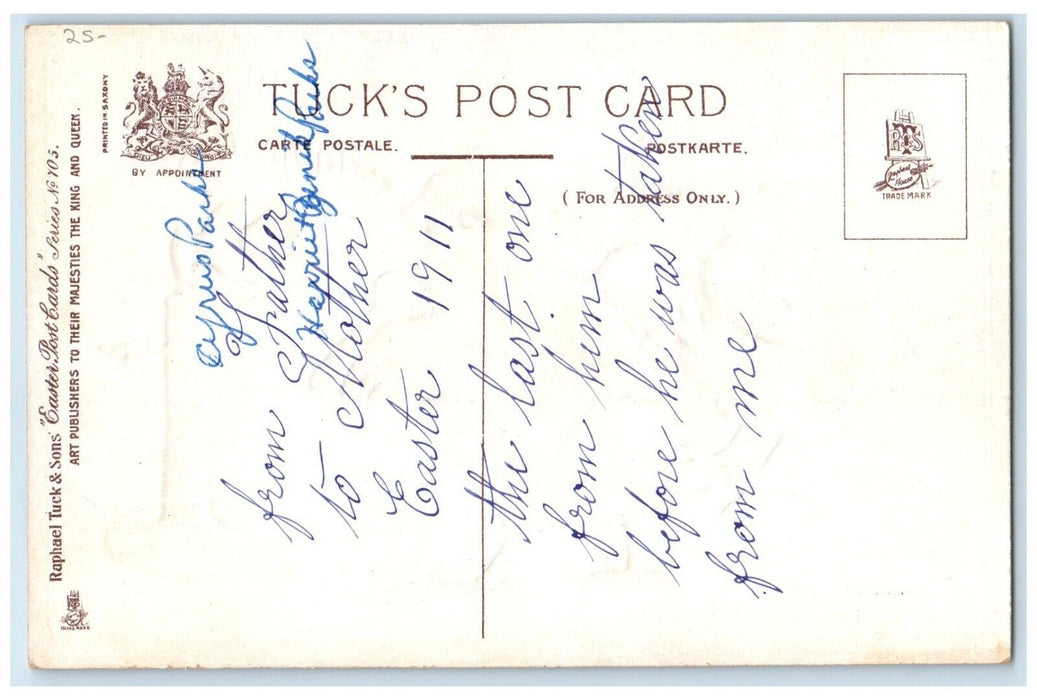 25-
PRINTED IN SAXONY
BY APPOINTMENT
TUCK'S POST CARD
CARTE POSTALE.
POSTKARTE.
(FOR ADDRESS ONLY.)
TRADE MARK
Raphael Tuck & Sons' "Easter Post Cards" Series No 105.
ART PUBLISHERS TO THEIR MAJESTIES THE KING AND QUEEN.
Cyrus Parks
from Father
Harriet Parks
to Mother
Easter 1911
the last one
from him
before he was taken
from me